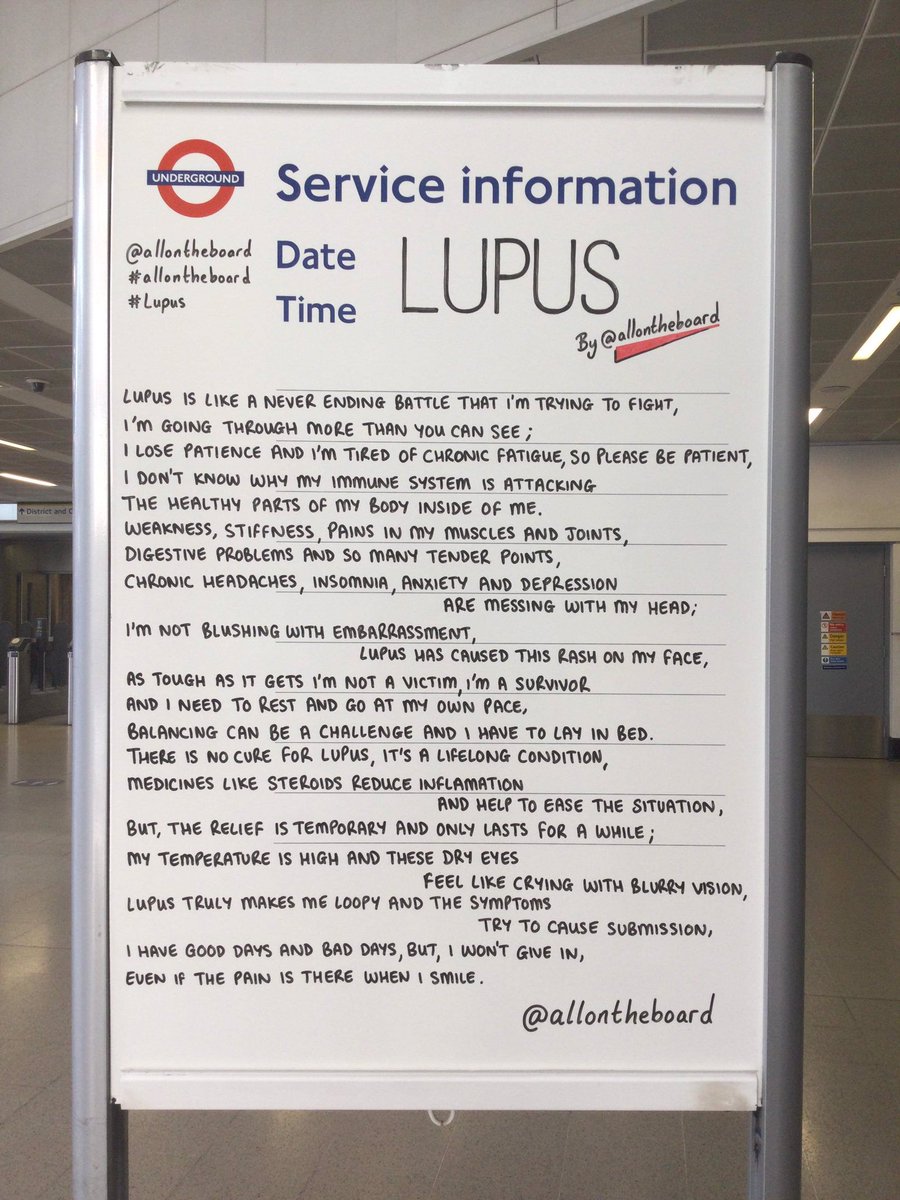 UNDERGROUND
Service information
@allontheboard
#allontheboard
#Lupus
Date
Time
LUPUS
By @allontheboard
LUPUS IS LIKE A NEVER ENDING BATTLE THAT I'M TRYING TO FIGHT,
I'M GOING THROUGH MORE THAN YOU CAN SEE;
I LOSE PATIENCE AND I'M TIRED OF CHRONIC FATIGUE, SO PLEASE BE PATIENT,
I DON'T KNOW WHY MY IMMUNE SYSTEM IS ATTACKING
THE HEALTHY PARTS OF MY BODY INSIDE OF ME.
WEAKNESS, STIFFNESS, PAINS IN MY MUSCLES AND JOINTS,
DIGESTIVE PROBLEMS AND SO MANY TENDER POINTS,
CHRONIC HEADACHES, INSOMNIA, ANXIETY AND DEPRESSION
ARE MESSING WITH MY HEAD;
I'M NOT BLUSHING WITH EMBARRASSMENT,
LUPUS HAS CAUSED THIS RASH ON MY FACE,
AS TOUGH AS IT GETS I'M NOT A VICTIM, I'M A SURVIVOR
AND I NEED TO REST AND GO AT MY OWN PACE,
BALANCING CAN BE A CHALLENGE AND I HAVE TO LAY IN BED.
THERE IS NO CURE FOR LUPUS, IT'S A LIFELONG CONDITION,
MEDICINES LIKE STEROIDS REDUCE INFLAMATION
AND HELP TO EASE THE SITUATION,
BUT, THE RELIEF IS TEMPORARY AND ONLY LASTS FOR A WHILE;
MY TEMPERATURE IS HIGH AND THESE DRY EYES
FEEL LIKE CRYING WITH BLURRY VISION,
LUPUS TRULY MAKES ME LOOPY AND THE SYMPTOMS
TRY TO CAUSE SUBMISSION,
I HAVE GOOD DAYS AND BAD DAYS, BUT, I WON'T GIVE IN,
EVEN IF THE PAIN IS THERE WHEN I SMILE.
@allontheboard
District and
Danger
Caution